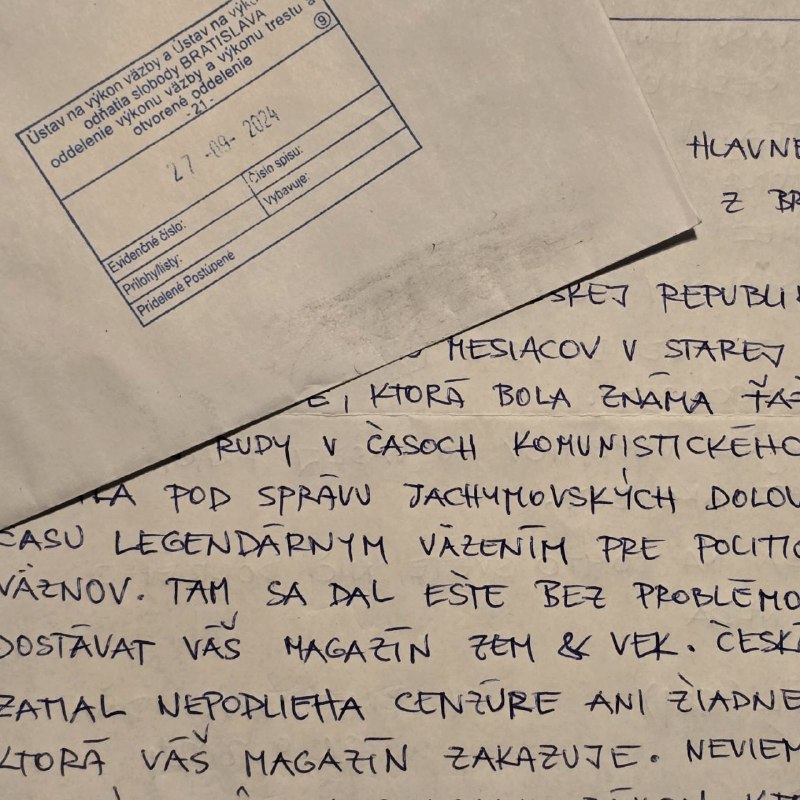 Ústav na výkon väzby a Ústav na výkon
odňatia slobody BRATISLAVA
oddelenie výkonu väzby a výkonu trestu a
otvorené oddelenie
9
- 21 -
27 -09- 2024
Číslo spisu:
Evidenčné číslo:
Vybavuje:
Prílohy/listy:
Pridelené Postúpené
HLAVNE
Z BR
SKEJ REPUBLIK
MESIACOV V STAREJ
E, KTORÁ BOLA ZNÁMA ŤAŽ
RUDY V ČASOCH KOMUNISTICKÉHO
LA POD SPRÁVU JACHYMOVSKÝCH DOLOV
ČASU LEGENDÁRNYM VÄZENÍM PRE POLITIC
VÄZNOV. TAM SA DAL EŠTE BEZ PROBLÉMO
DOSTÁVAT VÁŠ MAGAZÍN ZEM & VEK. ČESKÁ
ZATIAL NEPODLIEHA CENZÚRE ANI ŽIADNE
KTORÁ VÁŠ MAGAZÍN ZAKAZUJE. NEVIEM